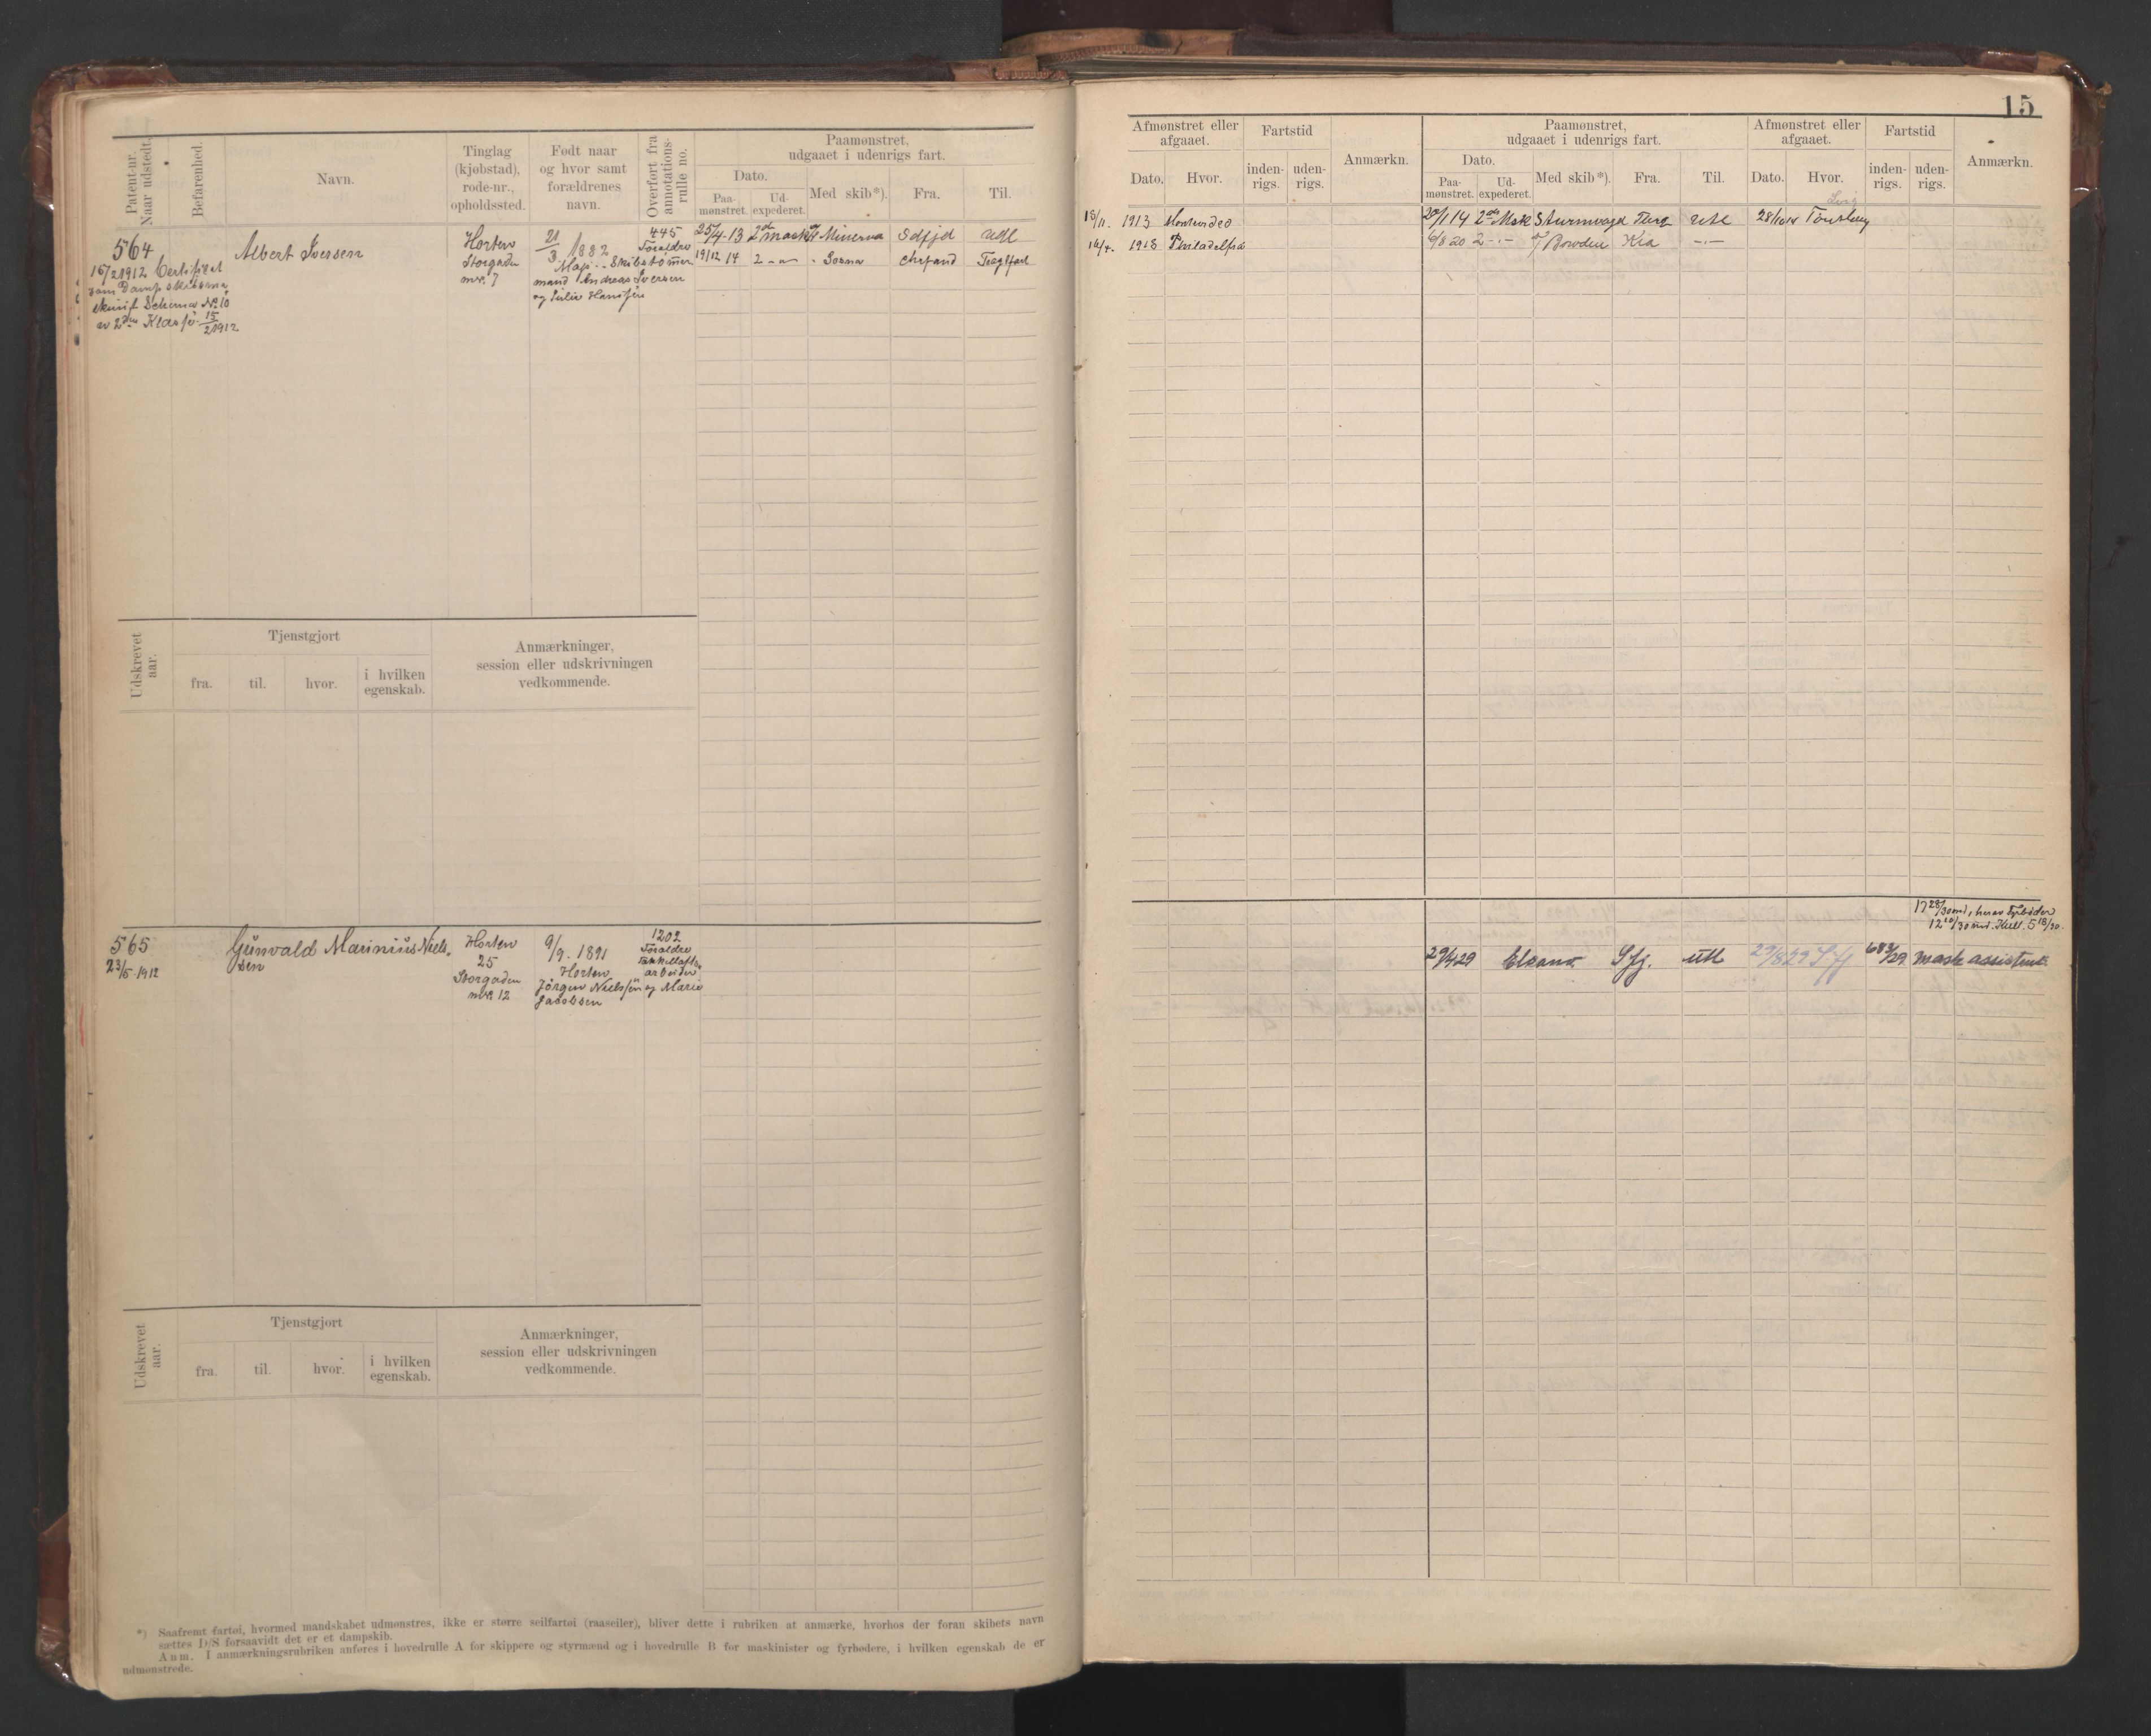 15
Patent-nr.
Naar udstedt.
Befarenhed.
Navn.
Tinglag
(kjøbstad),
rode-nr.,
opholdssted.
Født naar
og hvor samt
forældrenes
navn.
Overført fra
annotations-
rulle no.
Paamønstret,
udgaaet i udenrigs fart.
Dato.
Paa-
mønstret.
Ud-
expederet.
Med skib*).
Fra.
Til.
564
15/2 1912 Certifikat
som Dampskibsma
skinist Schema No 10
av 2den Klasse 15/2 1912
Albert Iversen
Horten
Storgaden
mno 7
21/3 1882
445
Forældre
Skibstømmer
mand Andreas Iversen
og Julie Hansen
25/4 13 2den mask Minerva Sdfjd Udl
19/12 14 2 - " - Sorna
Udskrevet
aar.
Tjenstgjort
fra.
til.
hvor.
i hvilken
egenskab.
Anmærkninger,
session eller udskrivningen
vedkommende.
565
23/5 1912
Gunvald Marinius Niel-
sen
Horten
25
Storgaden
mno 12
9/9. 1891
Horten
1202
Forældre
arbeider
Jörgen Nielsen og Marie
Jacobsen
Udskrevet
aar.
Tjenstgjort
fra.
til.
hvor.
i hvilken
egenskab.
Anmærkninger,
session eller udskrivningen
vedkommende.
*) Saafremt fartøi, hvormed mandskabet udmønstres, ikke er større seilfartøi (raaseiler), bliver dette i rubriken at anmærke, hvorhos der foran skibets navn
sættes D/S forsaavidt det er et dampskib.
Anm. I anmærkningsrubriken anføres i hovedrulle A for skippere og styrmænd og i hovedrulle B for maskinister og fyrbødere, i hvilken egenskab de er
udmønstrede.
Afmønstret eller
afgaaet.
Dato.
Hvor.
Fartstid
inden-
rigs.
uden-
rigs.
Anmærkn.
Paamønstret,
udgaaet i udenrigs fart.
Dato.
Paa-
mønstret.
Ud-
expederet.
Med skib*).
Fra.
Til.
Afmønstret eller
afgaaet.
Dato.
Hvor.
Fartstid
inden-
rigs.
uden-
rigs.
Anmærkn.
18/11. 1913
20/1 14 2den Mask Sturmvogel Tbrg Utl Tönsberg
16/4. 1918 Philadelfia
6/8 20 2 - " - Bowden Kra - " -
29/4 29 Elsana Sfj. Utl 29/8 29 Sfj mask assistent